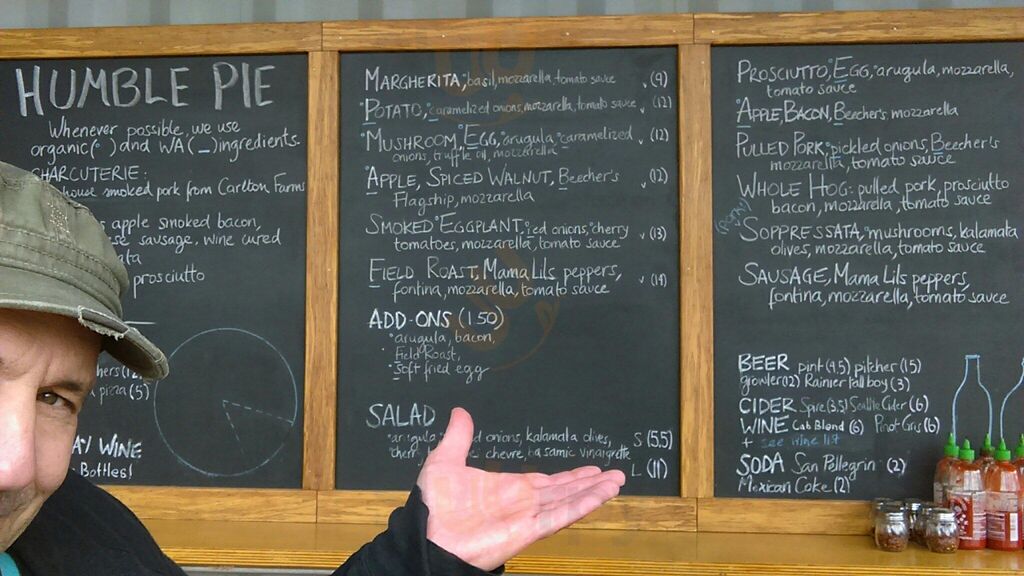 HUMBLE PIE
Whenever possible, we use
organic(°) and WA(_)ingredients.
CHARCUTERIE:
house smoked pork from Carlton Farms
apple smoked bacon,
sausage, wine cured
prosciutto
pizza (5)
WINE
Bottles!
MARGHERITA, °basil, mozzarella, tomato sauce v (9)
POTATO, caramelized onions, mozzarella, tomato sauce v (12)
°MUSHROOM, °EGG, °arugula, °caramelized v (12)
onions, truffle oil, mozzarella
APPLE, SPICED WALNUT, Beecher's v (12)
Flagship, mozzarella
SMOKED °EGGPLANT, °red onions, °cherry
tomatoes, mozzarella, tomato sauce v (13)
FIELD ROAST, Mama Lils peppers,
fontina, mozzarella, tomato sauce v (14)
ADD-ONS (1.50)
°arugula, bacon,
Field Roast,
°Soft fried egg
SALAD
°arugula, red onions, kalamata olives, S (5.5)
chevre, balsamic vinaigrette L (11)
PROSCIUTTO, °EGG, °arugula, mozzarella,
tomato sauce
°APPLE, BACON, Beechers mozzarella
PULLED PORK: pickled onions, Beecher's
mozzarella, tomato sauce
WHOLE HOG: pulled pork, prosciutto
bacon, mozzarella, tomato sauce
SOPPRESSATA, °mushrooms, kalamata
olives, mozzarella, tomato sauce
SAUSAGE, Mama Lils peppers,
fontina, mozzarella, tomato sauce
BEER pint (4.5) pitcher (15)
growler (12) Rainier tall boy (3)
CIDER Spire (3.5) Seattle Cider (6)
WINE Cab Blend (6) Pinot Gris (6)
+ see wine list
SODA San Pellegrin (2)
Mexican Coke (2)